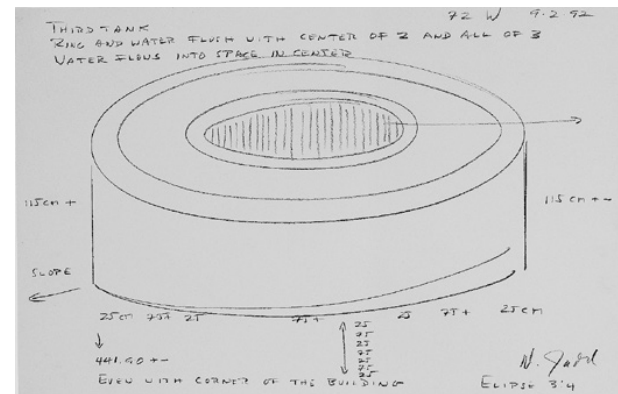 72 W 9.2.92
THIRD TANK
RING AND WATER FLUSH WITH CENTER OF 2 AND ALL OF 3
WATER FLOWS INTO SPACE IN CENTER
115 CM + 115 CM + -
SLOPE
25 CM 75+ 25 75+ 25 75+ 25 CM
25
75
25
75
25
75
25
441.90 + -
EVEN WITH CORNER OF THE BUILDING
N. Judd
ELIPSE 3:4